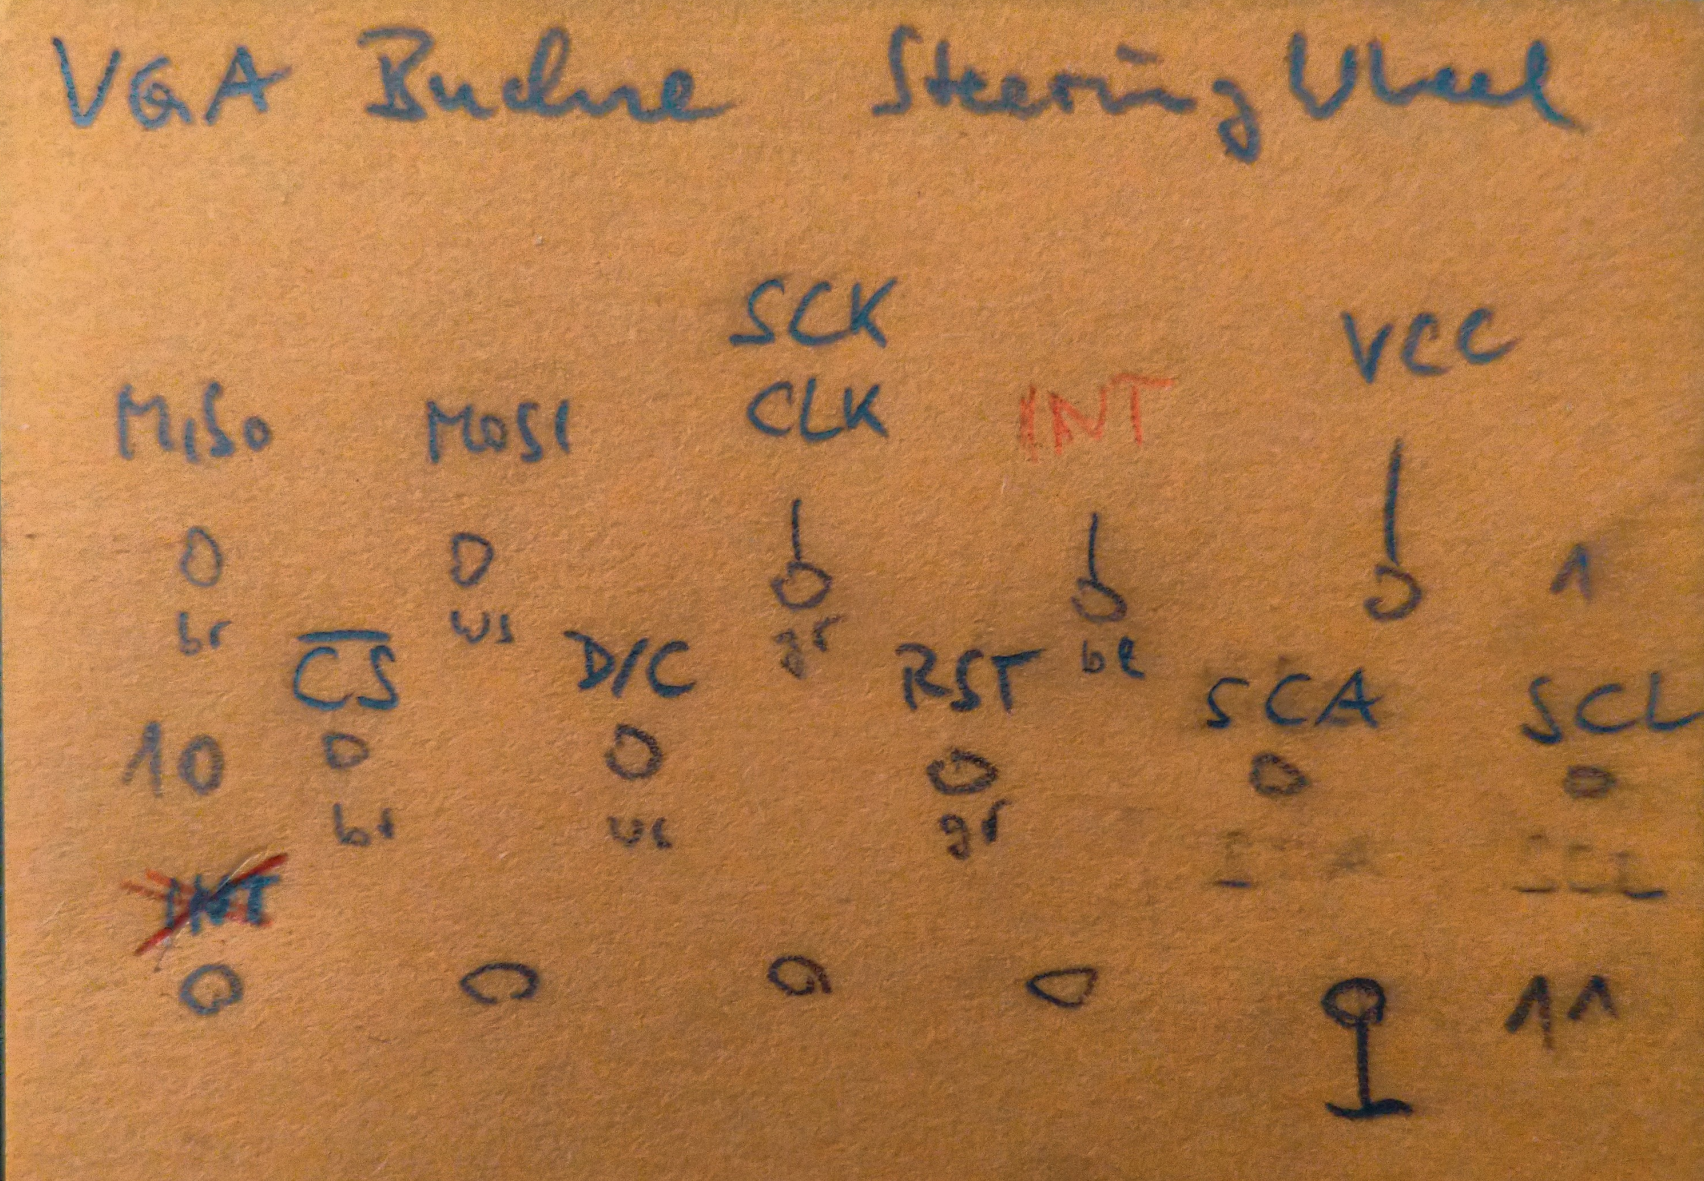 VGA Buchse Steering Wheel
SCK
VCC
MISO MOSI CLK INT
1
br ws gr be
CS D/C RST SCA SCL
10
br ws gr
SCL
INT
11